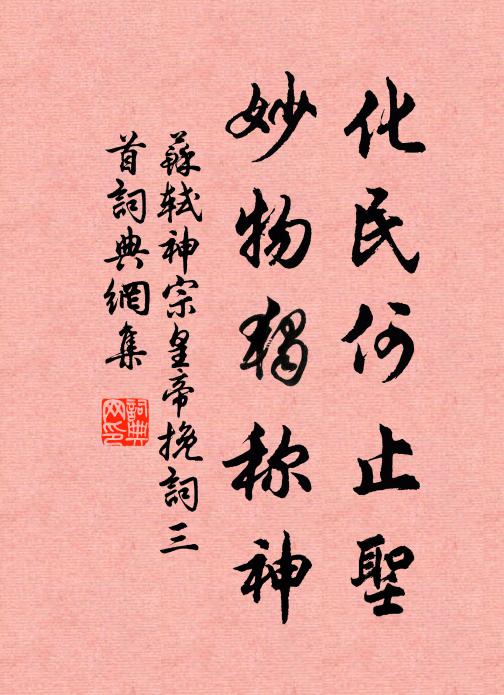 化民何止聖
妙物獨称神
蘇軾神宗皇帝挽詞三
首詞典網集
詞典
网印